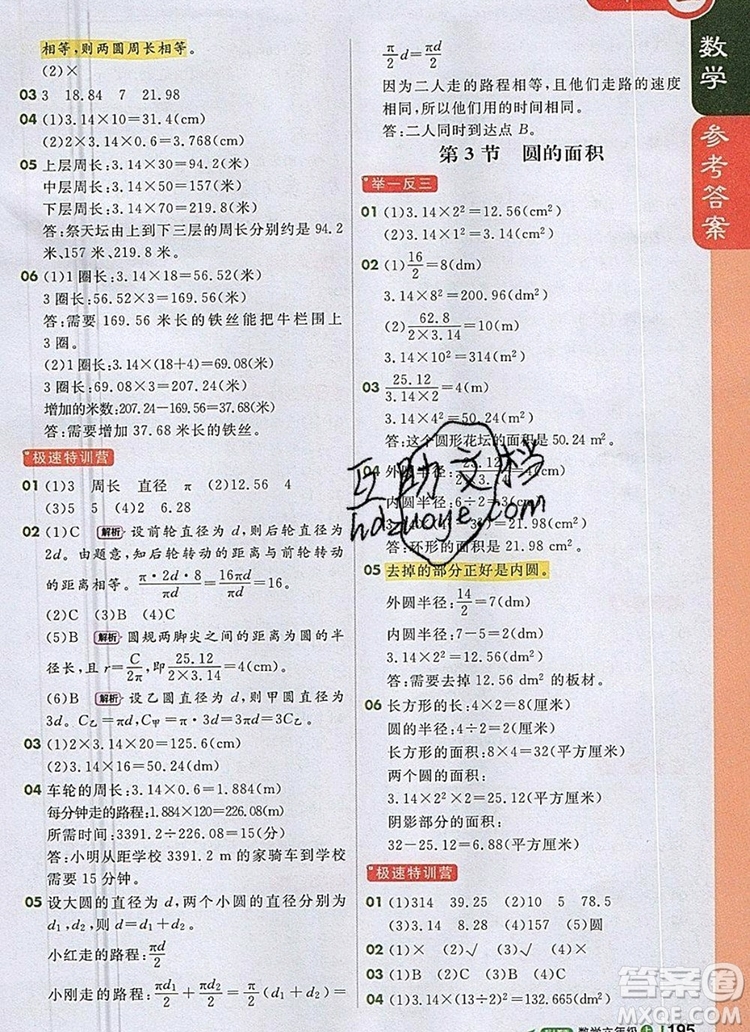 相等,则两圆周长相等。
(2)×
03 3 18.84 7 21.98
04 (1)3.14×10=31.4(cm)
(2)2×3.14×0.6=3.768(cm)
05 上层周长:3.14×30=94.2(米)
中层周长:3.14×50=157(米)
下层周长:3.14×70=219.8(米)
答:祭天坛由上到下三层的周长分别是94.2
米、157米、219.8米。
06 (1)1圈长:3.14×18=56.52(米)
3圈长:56.52×3=169.56(米)
答:需要169.56米长的铁丝能把牛栏围上
3圈。
(2)1圈长:3.14×(18+4)=69.08(米)
3圈长:69.08×3=207.24(米)
增加的米数:207.24-169.56=37.68(米)
答:需要增加37.68米长的铁丝。
极速特训营
01 (1)3 周长 直径 π (2)12.56 4
(3)5 5 (4)2 6.28
02 (1)C 解析 设前轮直径为d,则后轮直径为
2d。由题意,知后轮转动的距离与前轮转动
的距离相等。π·2d·8/πd=16πd/πd=16
(2)C (3)B (4)C
(5)B 解析 圆规两脚尖之间的距离为圆的半
径长,且r=C/2π=25.12/2×3.14=4(cm)
(6)B 解析 设乙圆直径为d,则甲圆直径为
3d。C乙=πd,C甲=π·3d=3πd=3C乙
03 (1)2×3.14×20=125.6(cm)
(2)3.14×16=50.24(dm)
04 车轮的周长:3.14×0.6=1.884(m)
每分钟走的路程:1.884×120=226.08(m)
所需时间:3391.2÷226.08=15(分)
答:小明从距学校3391.2m的家骑车到学校需
要15分钟。
05 设大圆的直径为d,两个小圆的直径分别为
d₁,d₂,则d₁+d₂=d。
小红走的路程:πd/2
小刚走的路程:πd₁/2+πd₂/2=π/2(d₁+d₂)=
π/2d=πd/2
因为二人走的路程相等,且他们走路的速度
相同,所以他们用的时间相同。
答:二人同时到达点B。
第3节 圆的面积
举一反三
01 (1)3.14×2²=12.56(cm²)
02 (1)16/2=8(dm)
3.14×8²=200.96(dm²)
(2)62.8/2×3.14=10(m)
3.14×10²=314(m²)
03 25.12/3.14×2=4(m)
3.14×4²=50.24(m²)
答:这个圆形花坛的面积是50.24m²。
04 外圆半径:
内圆半径:
答:环形的面积是21.98cm²。
05 去掉的部分正好是内圆。
外圆半径:14/2=7(dm)
内圆半径:7-5=2(dm)
3.14×2²=12.56(dm²)
答:需要去掉12.56dm²的板材。
06 长方形的长:4×2=8(厘米)
圆的半径:4÷2=2(厘米)
长方形的面积:8×4=32(平方厘米)
两个圆的面积:
3.14×2²×2=25.12(平方厘米)
阴影部分的面积:
32-25.12=6.88(平方厘米)
极速特训营
01 (1)314 39.25 (2)10 5 78.5
(3)3.14 8.28 (4)157 (5)圆
02 (1)× (2)√ (3)√ (4)×
03 (1)C (2)B (3)C (4)B
数学
参考答案
195
互助文档
hdzuoye.com
答案圈